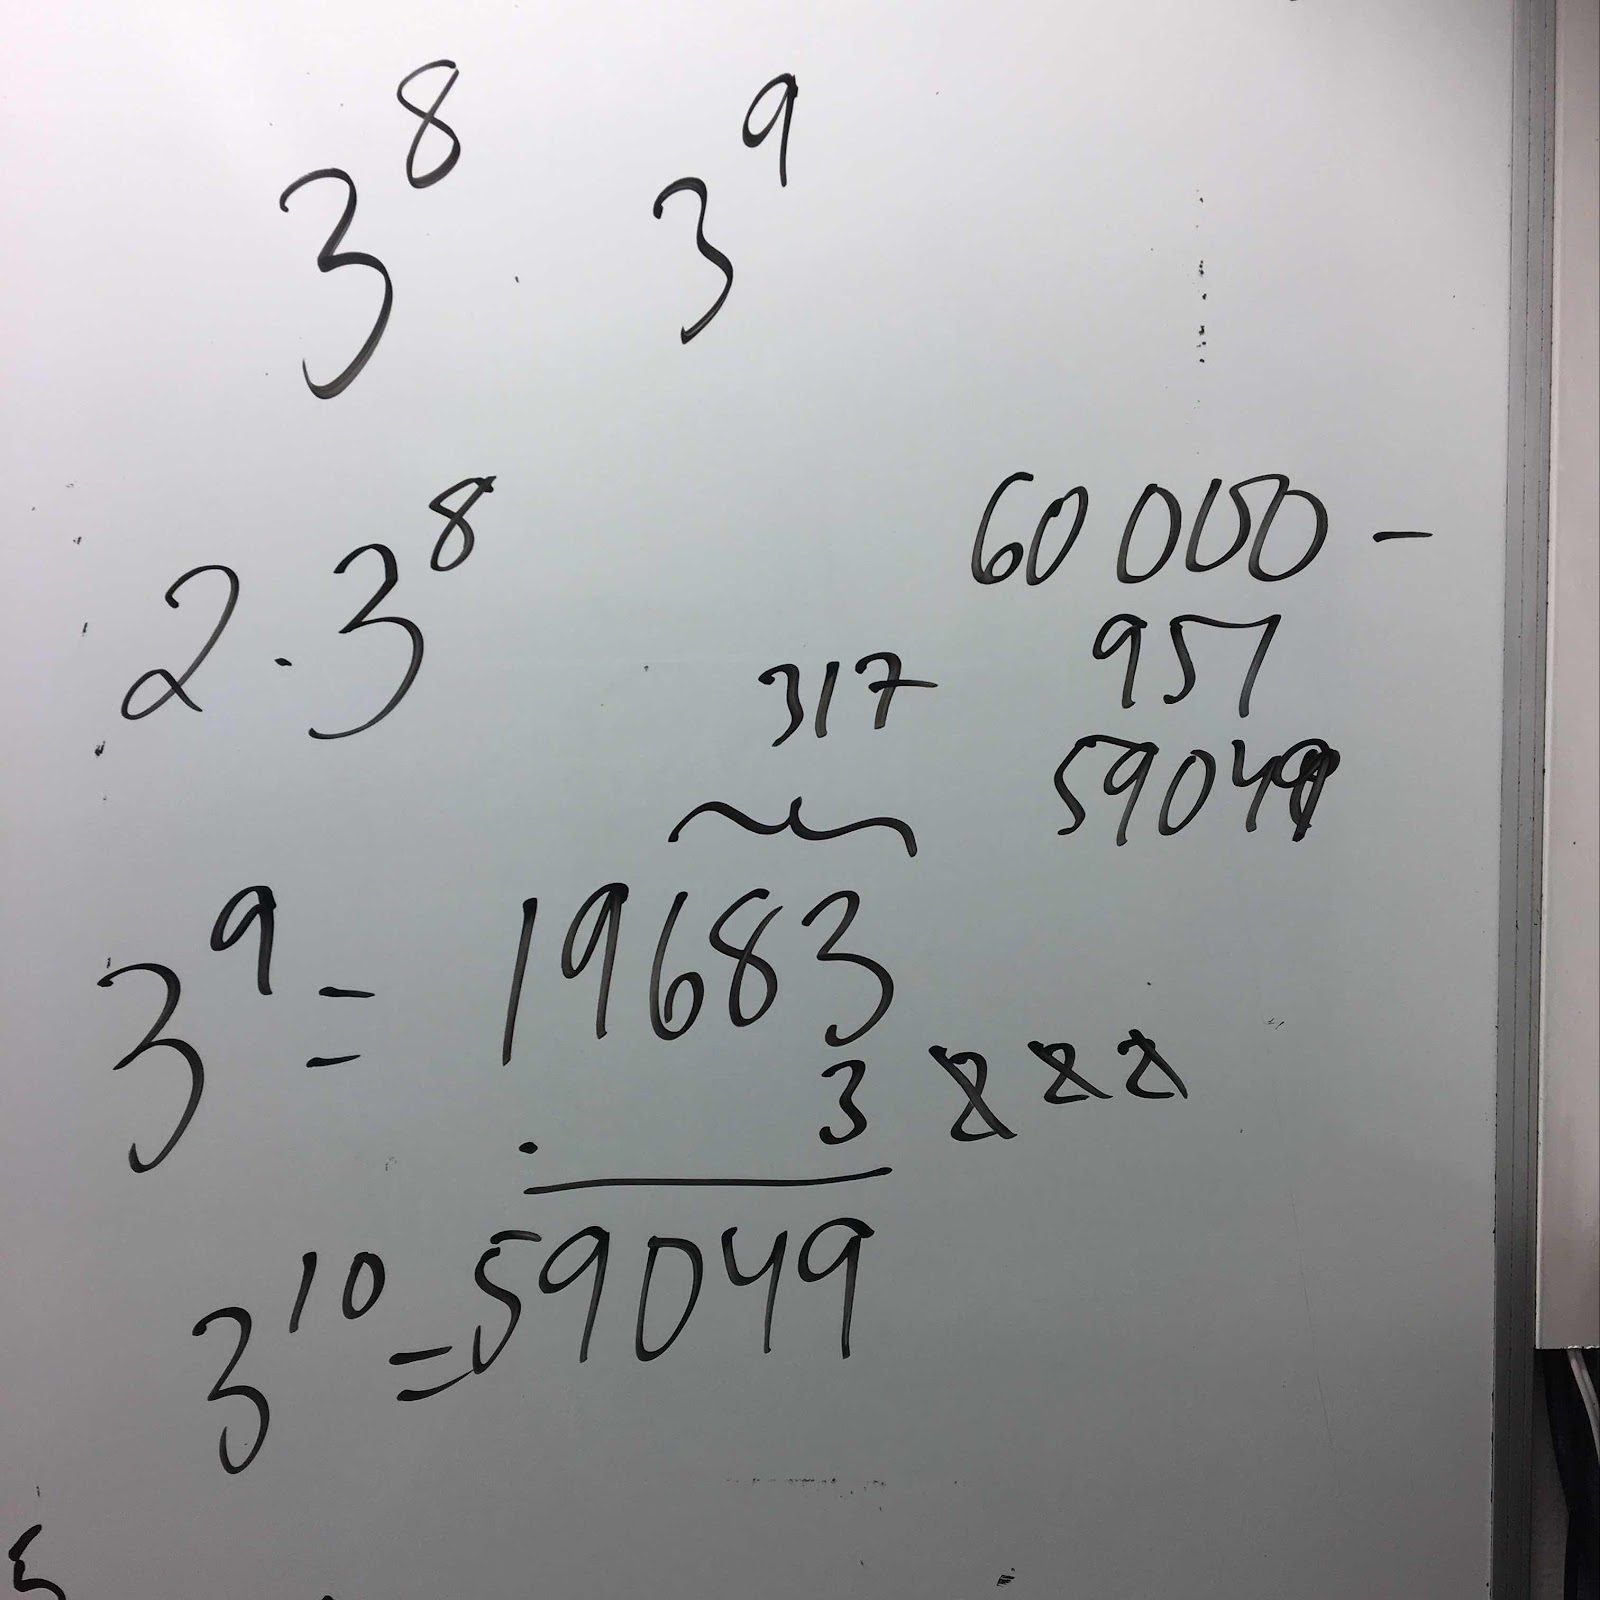 3⁸ 3⁹
2 · 3⁸
60 000 -
951
59049
317
3⁹ = 19683
· 3
3¹⁰ = 59049
5